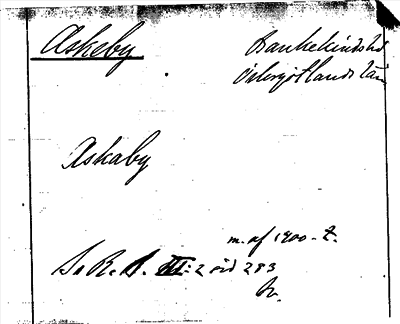 Askeby
Bankekindshd
Östergötlands län
Askaby
m. af 1900-t.
Sv R. A. III:2 sid 283